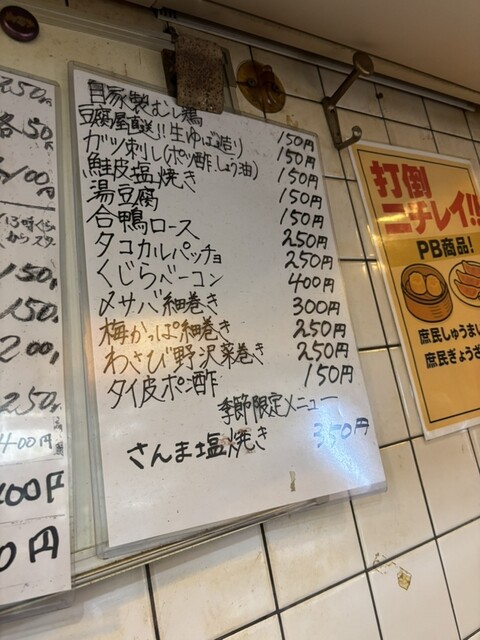 250円
50円
100円
13時ぐら
からスタ
150
150
200
250
400円
00円
0円
自家製むし鶏 150円
豆腐屋直送!!生ゆば造り 150円
ガツ刺し(ポン酢、しょう油) 150円
鮭皮塩焼き 150円
湯豆腐 150円
合鴨ロース 250円
タコカルパッチョ 250円
くじらベーコン 400円
〆サバ細巻き 300円
梅かっぱ細巻き 250円
わさび野沢菜巻き 250円
タイ皮ポン酢 150円
季節限定メニュー
さんま塩焼き 350円
打倒
ニチレイ!!
PB商品!
庶民しゅうまい
庶民ぎょうざ